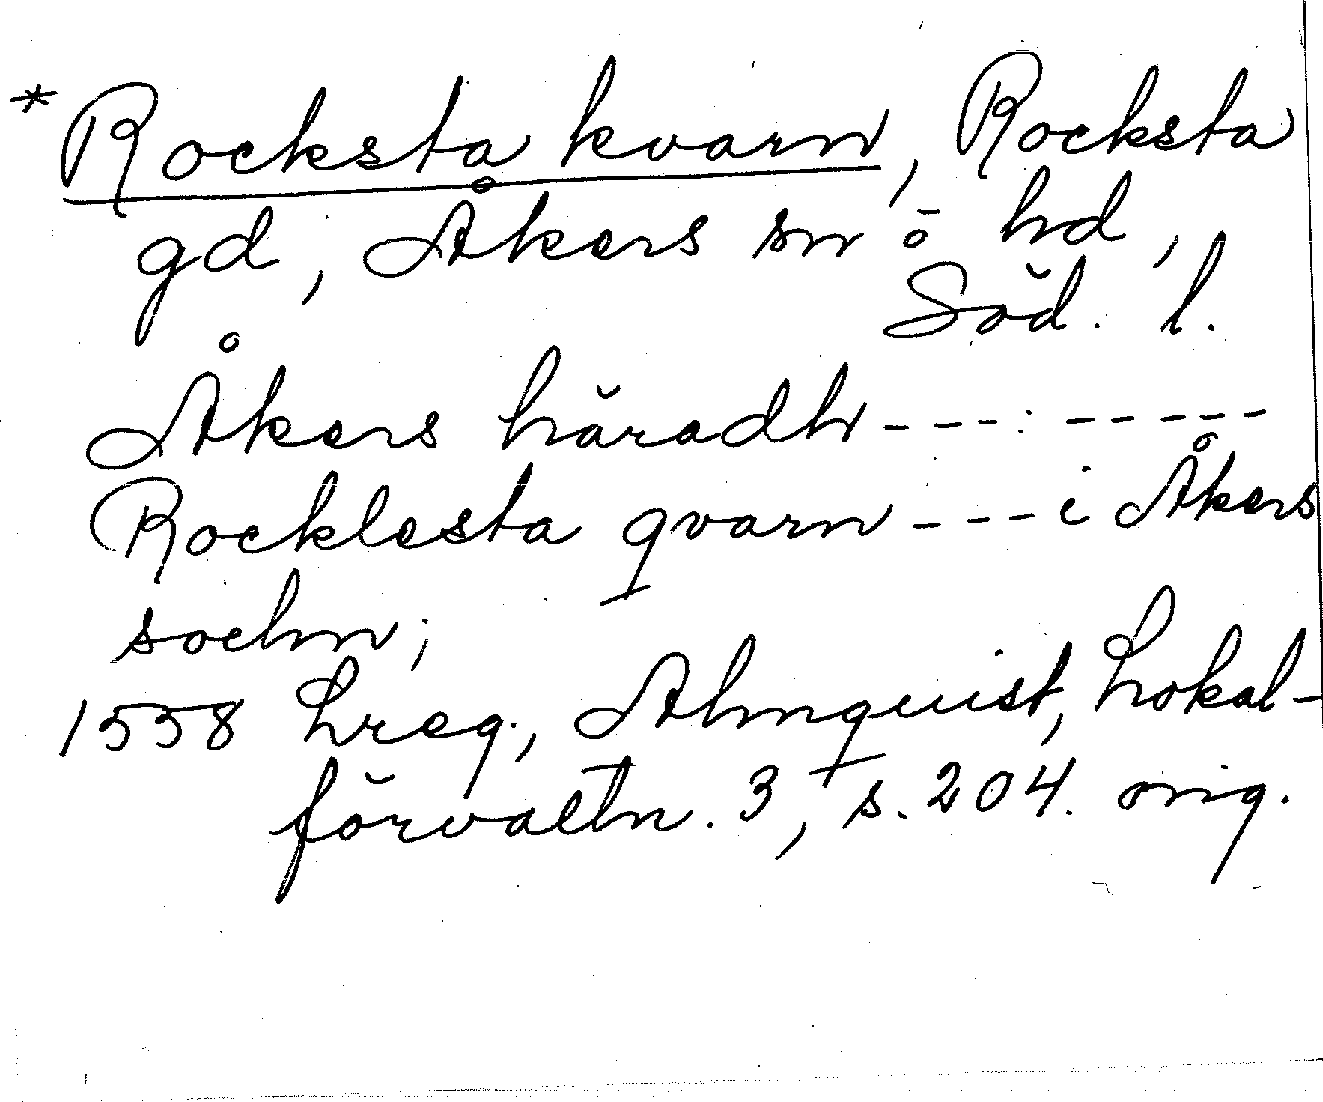 * Rocksta kvarn, Rocksta
gd, Åkers sn o hd,
Söd. l.
Åkers häradh ---:-----
Rocklesta qvarn --- i Åkers
sochn;
1558 Lreg., Almquist, Lokal-
förvaltn. 3, s. 204. orig.